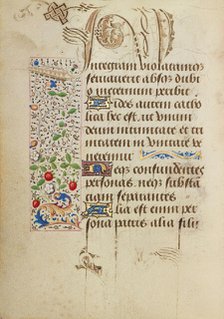 integram inviolatamqȝ
seruauerit absqȝ dubi
o eternum peribit
Fides autem catho
lica hec est. ut unum
deum in trinitate et trini
tatem in unitate
veneremur
Neqȝ confundentes
personas. neqȝ substā
ciam separantes
Alia est enim per
sona patris alia filii